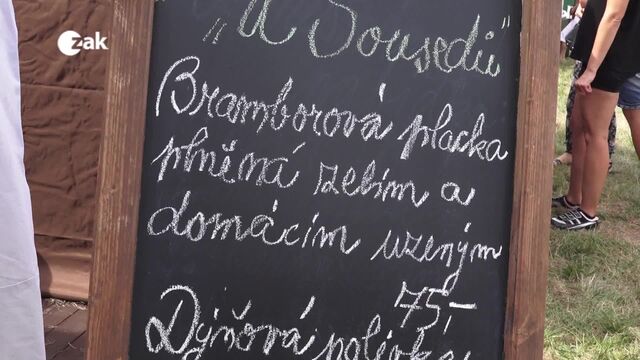 zak
„U Sousedů"
Bramborová placka
plněná zelím a
domácím uzeným
75,-
Dýňová polévka